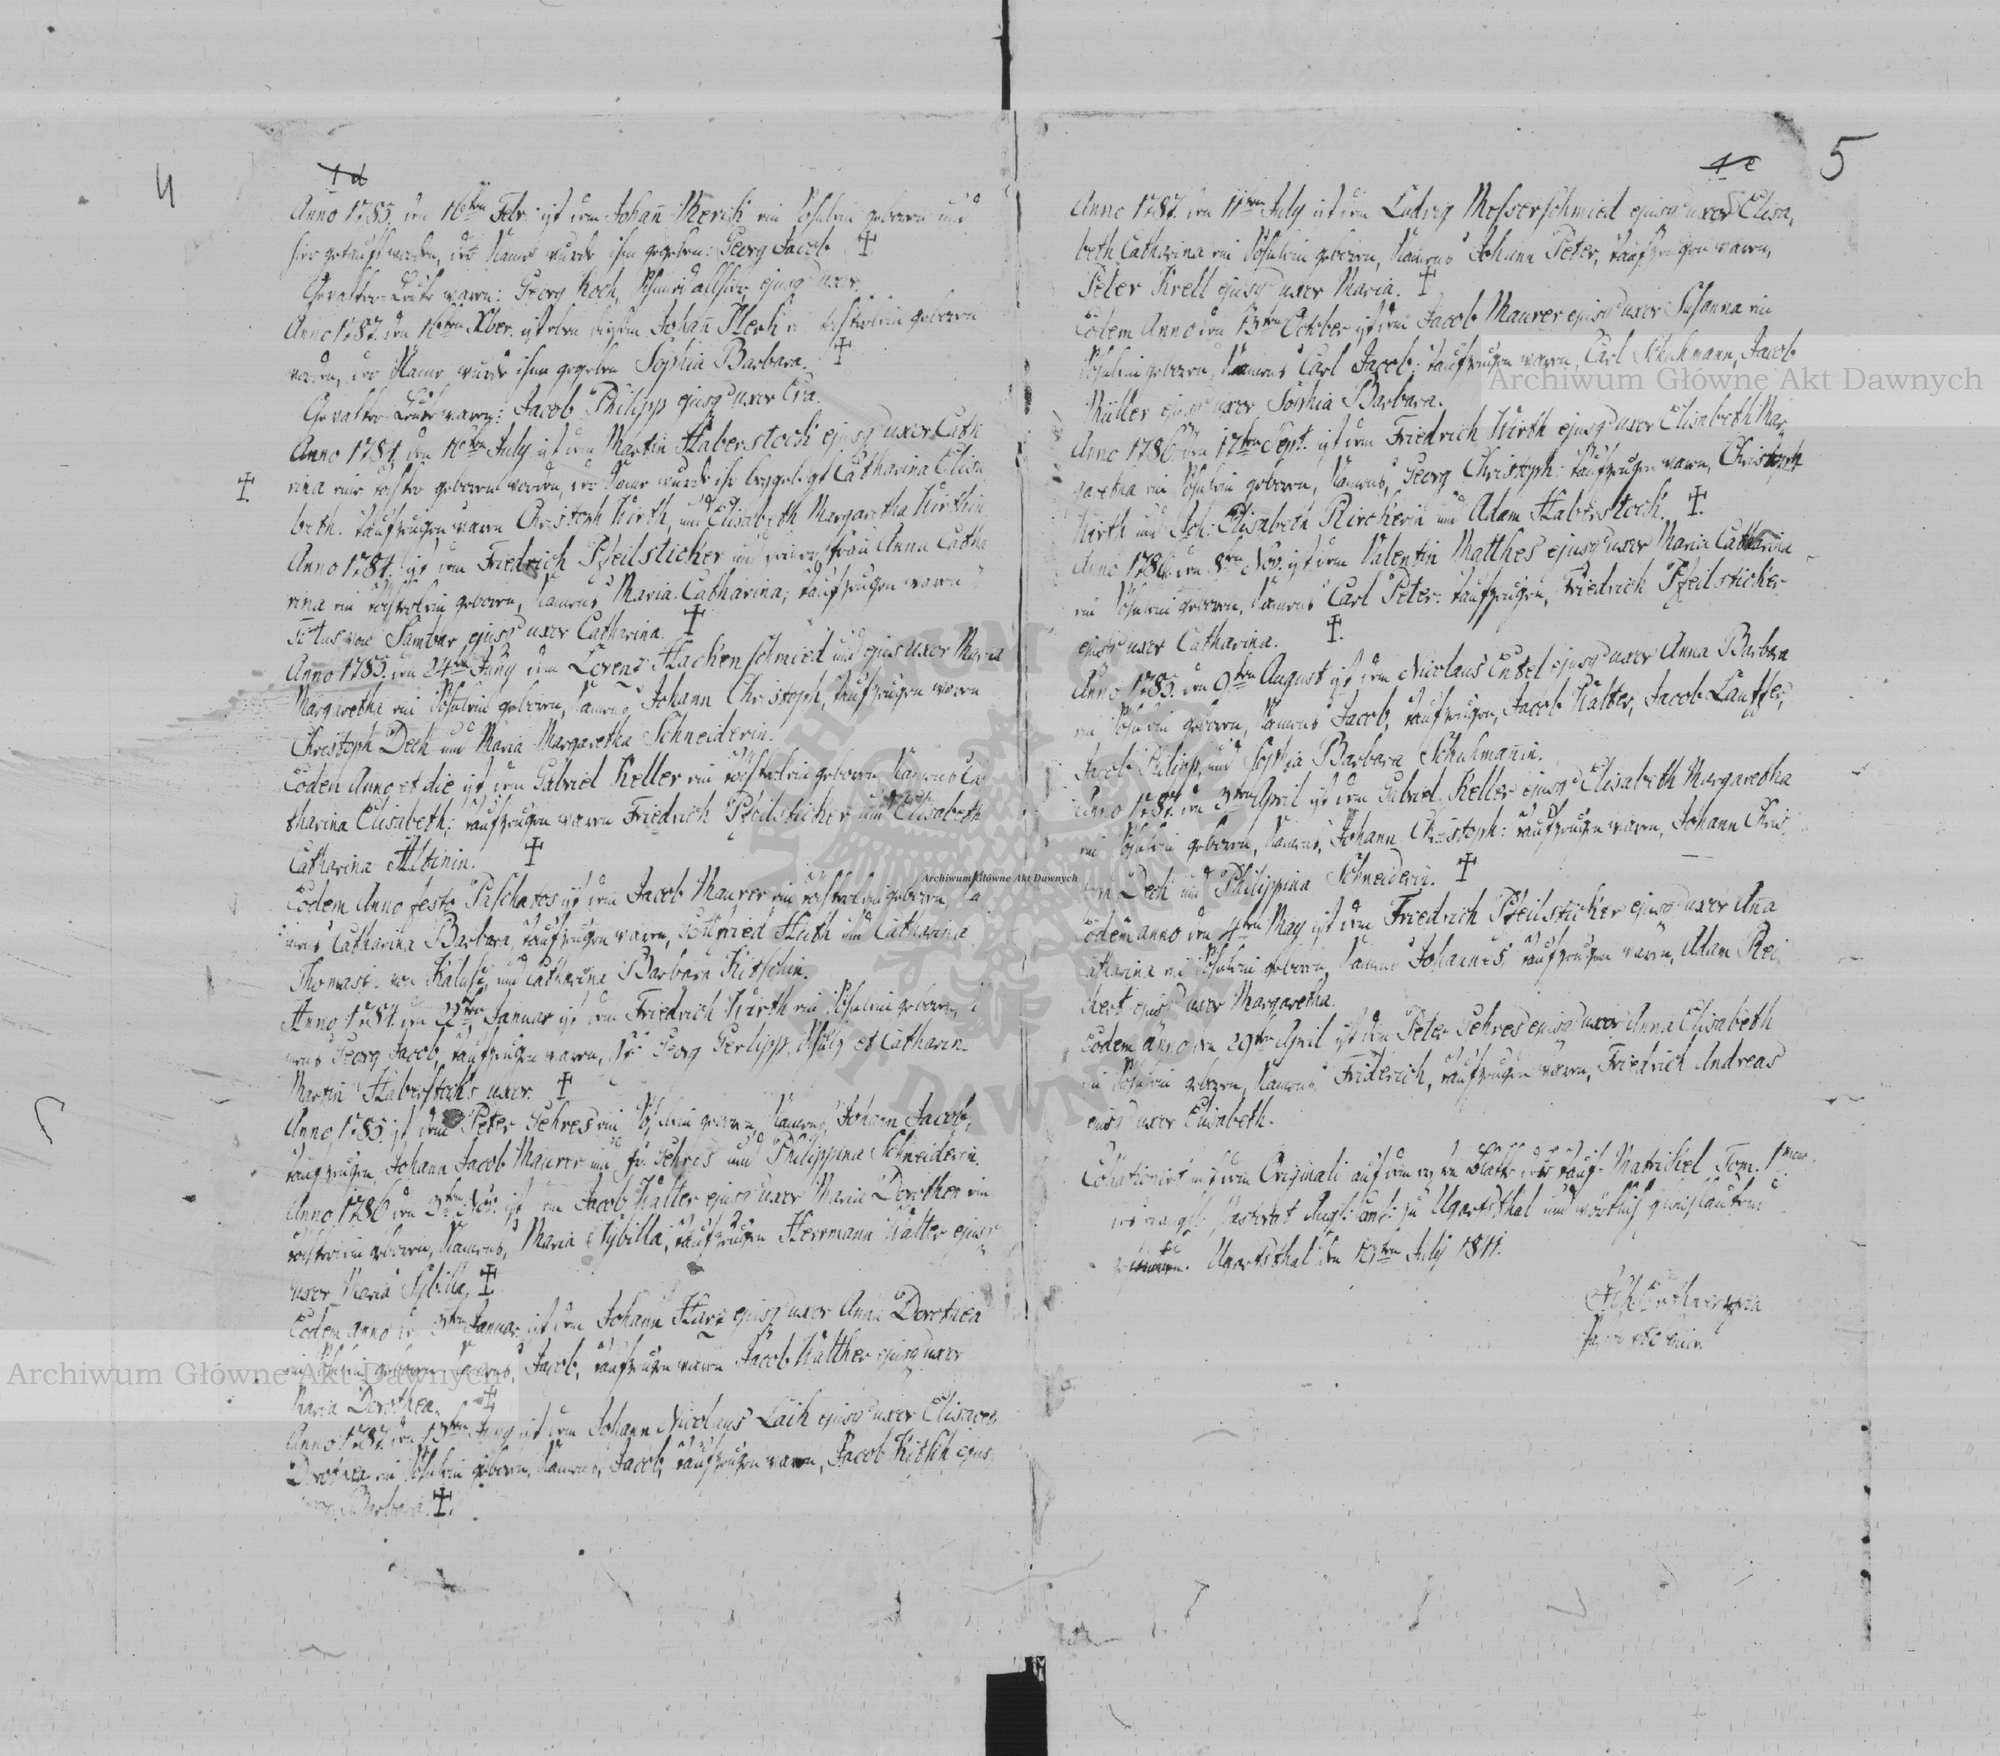 4
1d
Anno 1785. den 16ten Febr: ist dem Johann Merck ein Söhnlein geboren und
hier getauft worden, der Name wurde ihm gegeben: Georg Jacob ‡
Gevatter-Leute waren: Georg Koch, Schmid allhier, ejusq uxor.
Anno 1787. den 16ten Xber. ist eben diesem Johann Töchterlein geboren
worden, der Name wurde ihm gegeben Sophia Barbara. ‡
Gevatter-Leute waren: Jacob Philipp ejusq uxor Eva.
Anno 1784. den 10ten July ist dem Martin Haberstock ejusq uxor Catha
rina eine Tochter geboren worden, der Name wurde ihr beygelegt Catharina Elisa
‡ beth. Taufzeugen waren Christoph Hirth, und Elisabeth Margaretha Hirthin
Anno 1784. ist dem Friedrich Pfeilsticker und seiner Frau Anna Catha
rina ein Töchterlein geboren, Namens Maria Catharina; Taufzeugen waren
von Sambor ejusq uxor Catharina. ‡
Anno 1785. den 24ten Juny dem Lorenz Hackenschmied und ejus uxor Maria
Margaretha ein Söhnlein geboren, Namens Johann Christoph, Taufzeugen waren
Christoph Dech und Maria Margaretha Schneiderin.
Eodem Anno et die ist dem Gabriel Keller ein Töchterlein geboren Namens Ca
tharina Elisabeth: Taufzeugen waren Friedrich Pfeilsticker und Elisabeth
Catharina Altinin. ‡
Eodem Anno festo Paschatos ist dem Jacob Maurer ein Töchterlein geboren, Na
mens Catharina Barbara, Taufzeugen waren, Gottfried Huth und Catharina
Thomasi. von Kalusz, und Catharina Barbara
Anno 1784. den 22ten Januar ist dem Friedrich Hirth ein Söhnlein geboren, Na
mens Georg Jacob, Taufzeugen waren, Georg Gerlipp, et Catharin.
Martin Haberstocks uxor. ‡
Anno 1785. ist dem Peter Sehres ein Söhnlein geboren, Namens, Johann Jacob,
Taufzeugen, Johann Jacob Maurer und Sehres und Philippina Schneiderin.
Anno 1786 den 3ten Nov. ist dem Jacob Walter ejusq uxor Maria Dorothea ein
Töchterlein geboren, Namens, Maria Sybilla, Taufzeugen Herrmann Walter ejusq
uxor Maria Sybilla. ‡
Eodem anno den Januar, ist dem Johann Harz ejusq uxor Anna Dorothea
ein Söhnlein geboren Namens, Jacob, Taufzeugen waren Jacob Walther ejusq uxor
Maria Dorothea. ‡
Anno 1787. den 13ten Juny ist dem Johann Nicolaus ejusq uxor Elisabeth
Dorothea ein Söhnlein geboren, Namens, Jacob, Taufzeugen waren, Jacob ejus
Barbara. ‡
5
Anno 1787. den 11ten July ist dem Ludwig Messerschmied ejusq uxor Elisa,
beth Catharina ein Söhnlein geboren, Namens Johann Peter, Taufzeugen waren,
Peter Krell ejusq uxor Maria. ‡
Eodem Anno den 13ten October, ist dem Jacob Maurer ejusq uxor Susanna ein
Söhnlein geboren, Namens Carl Jacob; Taufzeugen waren, Carl Schuhmann, Jacob
Müller ejusq uxor Sophia Barbara.
Anno 1786 den 17ten Sept. ist dem Friedrich Hirth ejusq uxor Elisabeth Mar,
garetha ein Söhnlein geboren, Namens, Georg Christoph: Taufzeugen waren, Christoph
Hirth und Joh: Elisabeth und Adam Haberstock. ‡
Anno 1786. den 8ten Nov. ist dem Valentin Matthes ejusq uxor Maria Catharina
ein Söhnlein geboren, Namens Carl Peter: Taufzeugen, Friedrich Pfeilsticker
ejusq uxor Catharina. ‡
Anno 1785. den 9ten August ist dem Nicolaus Entel ejusq uxor Anna Barbara
ein Söhnlein geboren, Namens Jacob, Taufzeugen, Jacob Walter, Jacob Lauffer,
Jacob Philipp, und Sophia Barbara Schuhmannin.
Anno 1787. den April ist dem Gabriel Keller ejusq Elisabeth Margaretha
ein Söhnlein geboren, Namens, Johann Christoph: Taufzeugen waren, Johann Chris
toph Dech und Philippina Schneiderin. ‡
Eodem anno den 4ten May ist dem Friedrich Pfeilsticker ejusq uxor Anna
Catharina ein Söhnlein geboren, Namens Johannes, Taufzeugen waren, Adam Rei,
chert ejusq uxor Margaretha.
Eodem anno den 29ten April ist dem Peter Sehres ejusq uxor Anna Elisabeth
ein Söhnlein geboren, Namens Friderich, Taufzeugen waren, Friedrich Andreas
ejusq uxor Elisabeth.
Collationirt mit dem Originali auf dem Blatt der Tauf-Matrikel Tom. 1
des evangl: Pastorat Augs: Conf: zu Ugartsthal und wörtlich gleichlautend
Ugartsthal den July 1811.
Archiwum Główne Akt Dawnych
Archiwum Główne Akt Dawnych
Archiwum Główne Akt Dawnych